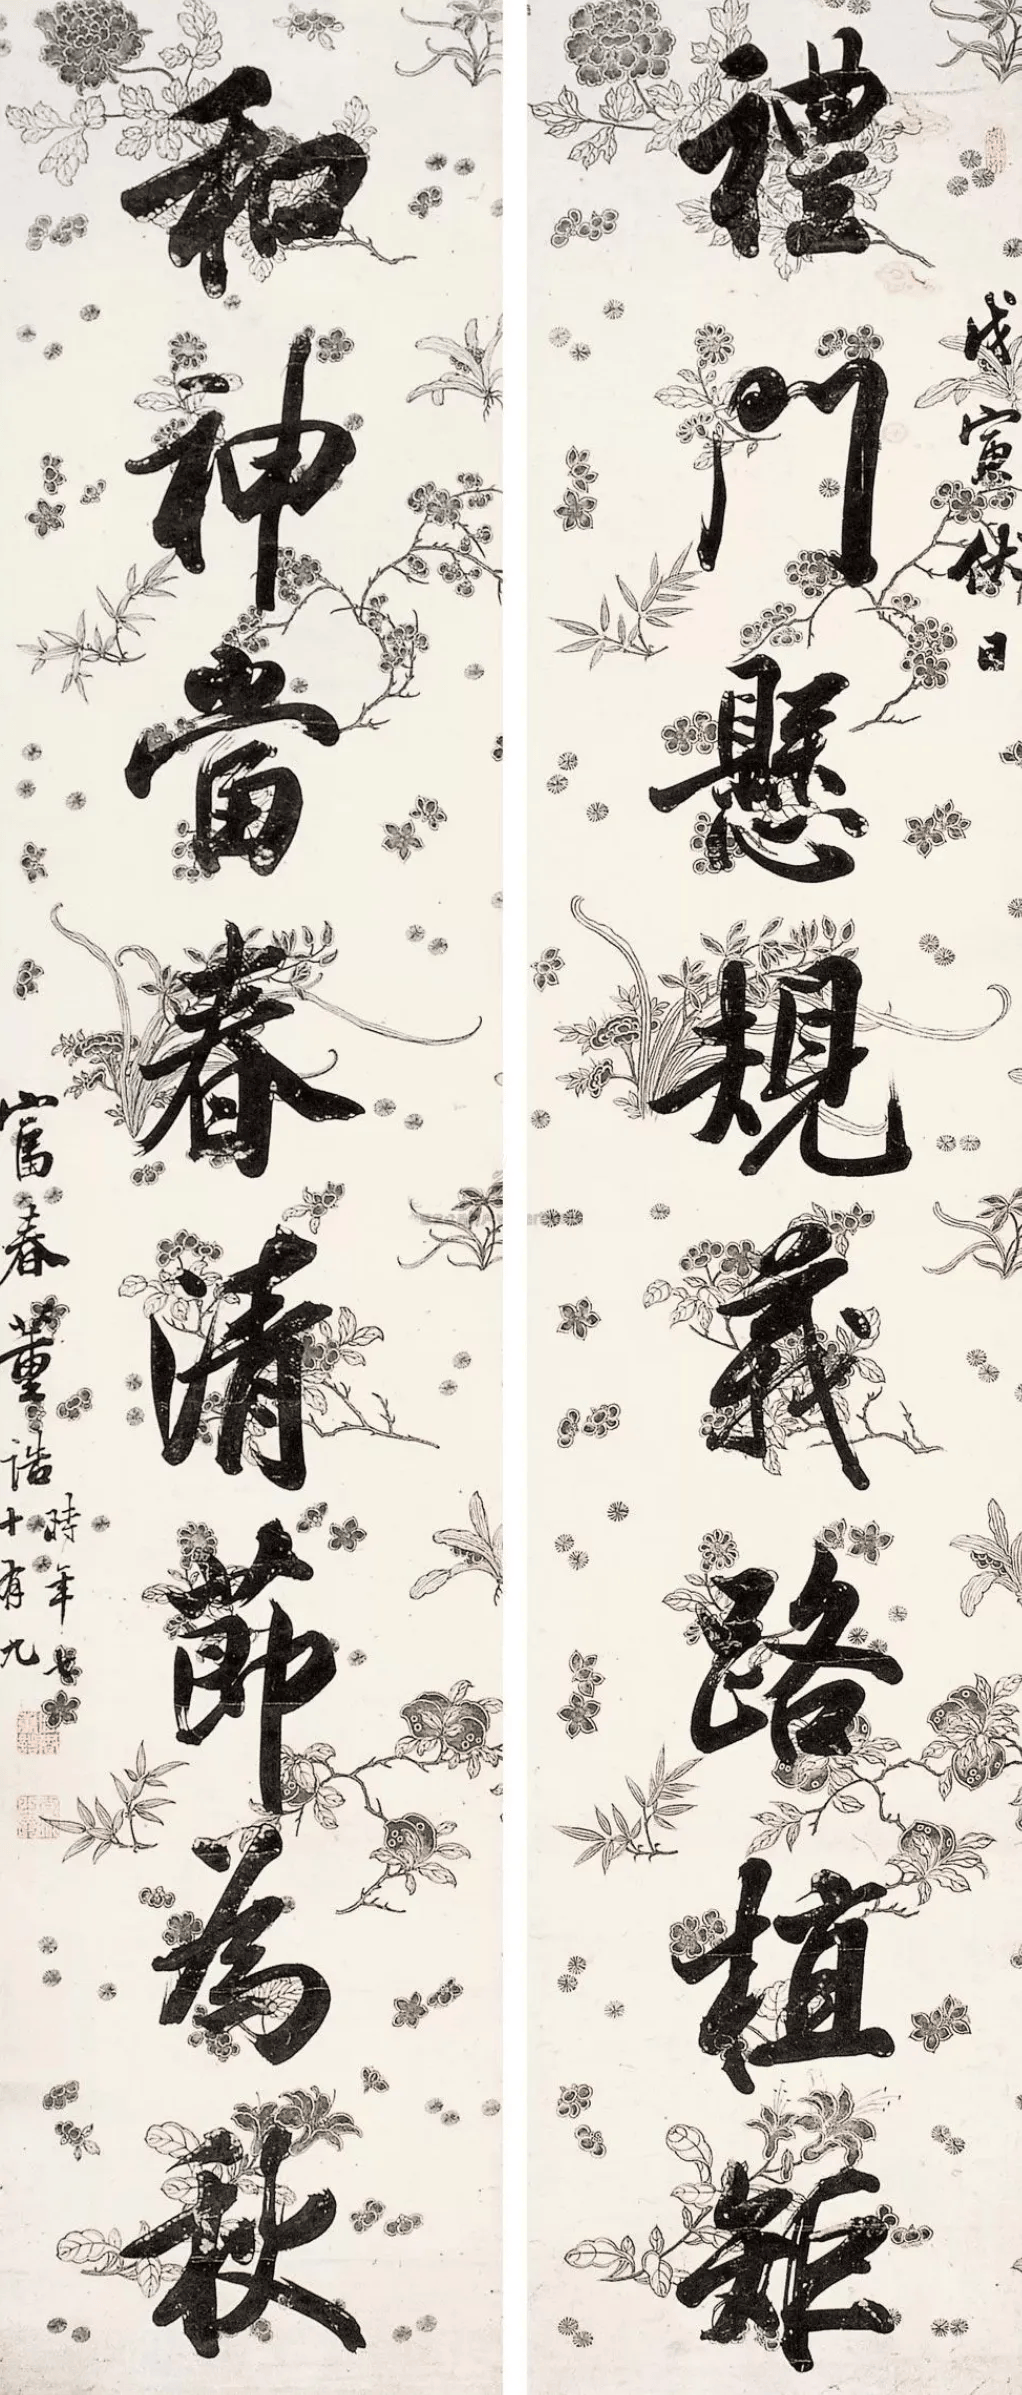 戊寅伏日
禮門懸規義路植矩
和神當春清節為秋
富春董誥
時年七
十有九